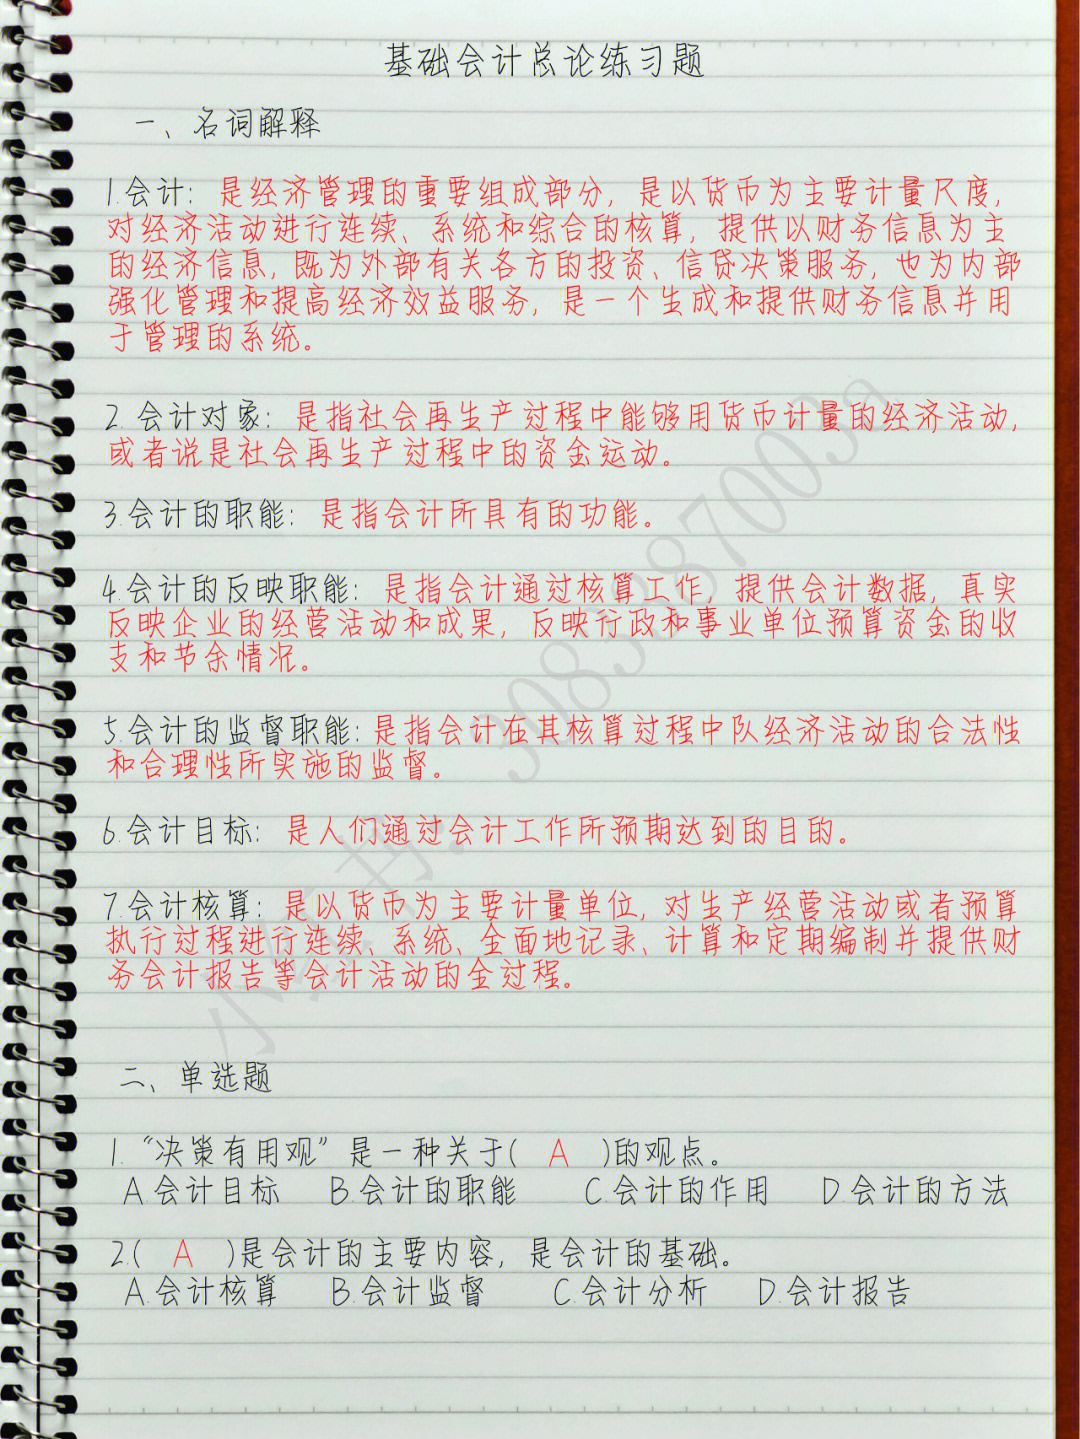 基础会计总论练习题
一、名词解释
1.会计：是经济管理的重要组成部分，是以货币为主要计量尺度，
对经济活动进行连续、系统和综合的核算，提供以财务信息为主
的经济信息，既为外部有关各方的投资、信贷决策服务，也为内部
强化管理和提高经济效益服务，是一个生成和提供财务信息并用
于管理的系统。
2.会计对象：是指社会再生产过程中能够用货币计量的经济活动，
或者说是社会再生产过程中的资金运动。
3.会计的职能：是指会计所具有的功能。
4.会计的反映职能：是指会计通过核算工作，提供会计数据，真实
反映企业的经营活动和成果，反映行政和事业单位预算资金的收
支和节余情况。
5.会计的监督职能：是指会计在其核算过程中队经济活动的合法性
和合理性所实施的监督。
6.会计目标：是人们通过会计工作所预期达到的目的。
7.会计核算：是以货币为主要计量单位，对生产经营活动或者预算
执行过程进行连续、系统、全面地记录、计算和定期编制并提供财
务会计报告等会计活动的全过程。
二、单选题
1.“决策有用观”是一种关于( A )的观点。
A.会计目标 B.会计的职能 C.会计的作用 D.会计的方法
2.( A )是会计的主要内容，是会计的基础。
A.会计核算 B.会计监督 C.会计分析 D.会计报告